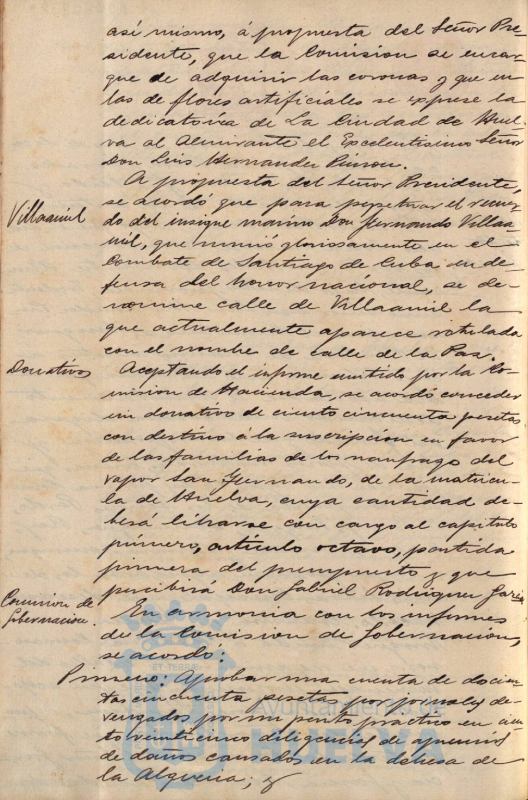 así mismo, á propuesta del Señor Pre-
sidente, que la Comision se encar-
gue de adquirir las coronas y que en
las de flores artificiales se exprese la
dedicatoria de La Ciudad de Huel-
va al Almirante el Excelentisimo Señor
Don Luis Hernandez Pinzon.
A propuesta del Señor Presidente,
Villaamil
se acordó que para perpetuar el recuer-
do del insigne marino Don Fernando Villaa-
mil, que murió gloriosamente en el
Combate de Santiago de Cuba en de-
fensa del honor nacional, se de-
nomine calle de Villaamil la
que actualmente aparece rotulada
con el nombre de calle de la Paz.
Donativos
Aceptando el informe emitido por la Co-
mision de Hacienda, se acordó conceder
un donativo de ciento cincuenta pesetas
con destino á la suscripcion en favor
de las familias de los naufragos del
vapor San Fernando, de la matricu-
la de Huelva, cuya cantidad de-
berá librarse con cargo al capitulo
primero, artículo octavo, partida
primera del presupuesto y que
percibirá Don Gabriel Rodriguez Garcia
Comision de
Gobernacion.
En armonia con los informes
de la Comision de Gobernacion,
se acordó:
Primero: Aprobar una cuenta de docien-
tas cincuenta pesetas por jornales de-
vengados por un perito practico en
veinticinco diligencias de aprecios
de daños causados en la dehesa de
la Alqueria; y
ET TERRAE
Ayuntamiento de
HUELVA